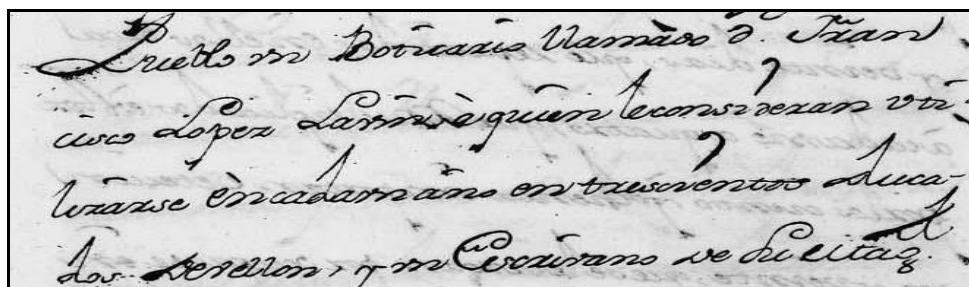 Pueblo un Boticario llamado dⁿ. Fran
cisco Lopez Larin, à quien le consideran uti
lizarse èn cada un año en trescientos Duca-
dos de vellon, y un Escrivano de